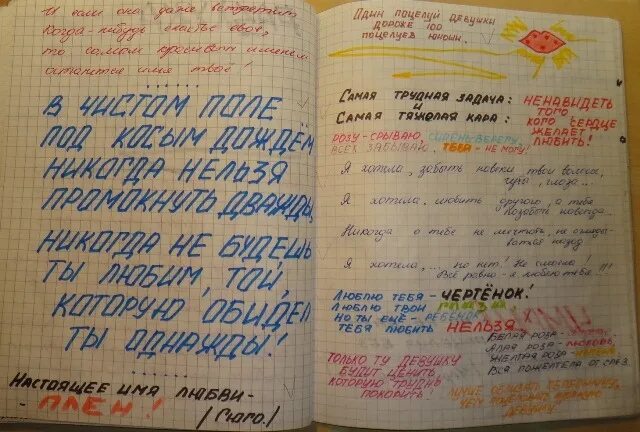 И если она даже встретит
когда-нибудь счастье своё,
то самым красивым именем
останется имя твоё!
В ЧИСТОМ ПОЛЕ
ПОД КОСЫМ ДОЖДЁМ
НИКОГДА НЕЛЬЗЯ
ПРОМОКНУТЬ ДВАЖДЫ,
НИКОГДА НЕ БУДЕШЬ
ТЫ ЛЮБИМ ТОЙ,
КОТОРУЮ ОБИДЕЛ
ТЫ ОДНАЖДЫ!
НАСТОЯЩЕЕ ИМЯ ЛЮБВИ -
- ПЛЕН!
/Гюго./
ОДИН ПОЦЕЛУЙ ДЕВУШКИ
ДОРОЖЕ 100
ПОЦЕЛУЕВ ЮНОШИ.
САМАЯ ТРУДНАЯ ЗАДАЧА:
И
САМАЯ ТЯЖЁЛАЯ КАРА:
НЕНАВИДЕТЬ
ТОГО,
КОГО СЕРДЦЕ
ЖЕЛАЕТ
ЛЮБИТЬ!
РОЗУ - СРЫВАЮ, СИРЕНЬ-БЕРЕГУ,
ВСЕХ ЗАБЫВАЮ, ТЕБЯ - НЕ МОГУ!
Я хотела, забыть навеки твои волосы,
губы, глаза...
Я хотела, любить другого, а тебя
позабыть навсегда...
Никогда о тебе не мечтать, не огляды-
ваться назад
Я хотела, ... но нет! Не смогла!
Всё равно - я люблю тебя!!!
ЛЮБЛЮ ТЕБЯ - ЧЕРТЁНОК!
ЛЮБЛЮ ТВОИ ГЛАЗА
НО ТЫ ЕЩЁ - РЕБЁНОК
ТЕБЯ ЛЮБИТЬ НЕЛЬЗЯ
БЕЛАЯ РОЗА -
АЛАЯ РОЗА - ЛЮБОВЬ,
ЖЁЛТАЯ РОЗА -
ВСЯ ПОЖЕЛТЕЛА ОТ СЛЁЗ.
ТОЛЬКО ТУ ДЕВУШКУ
БУДУТ ЦЕНИТЬ
КОТОРУЮ ТРУДНО
ПОКОРИТЬ!
ЛУЧШЕ
ЧЕМ
ДЕВУШКУ!